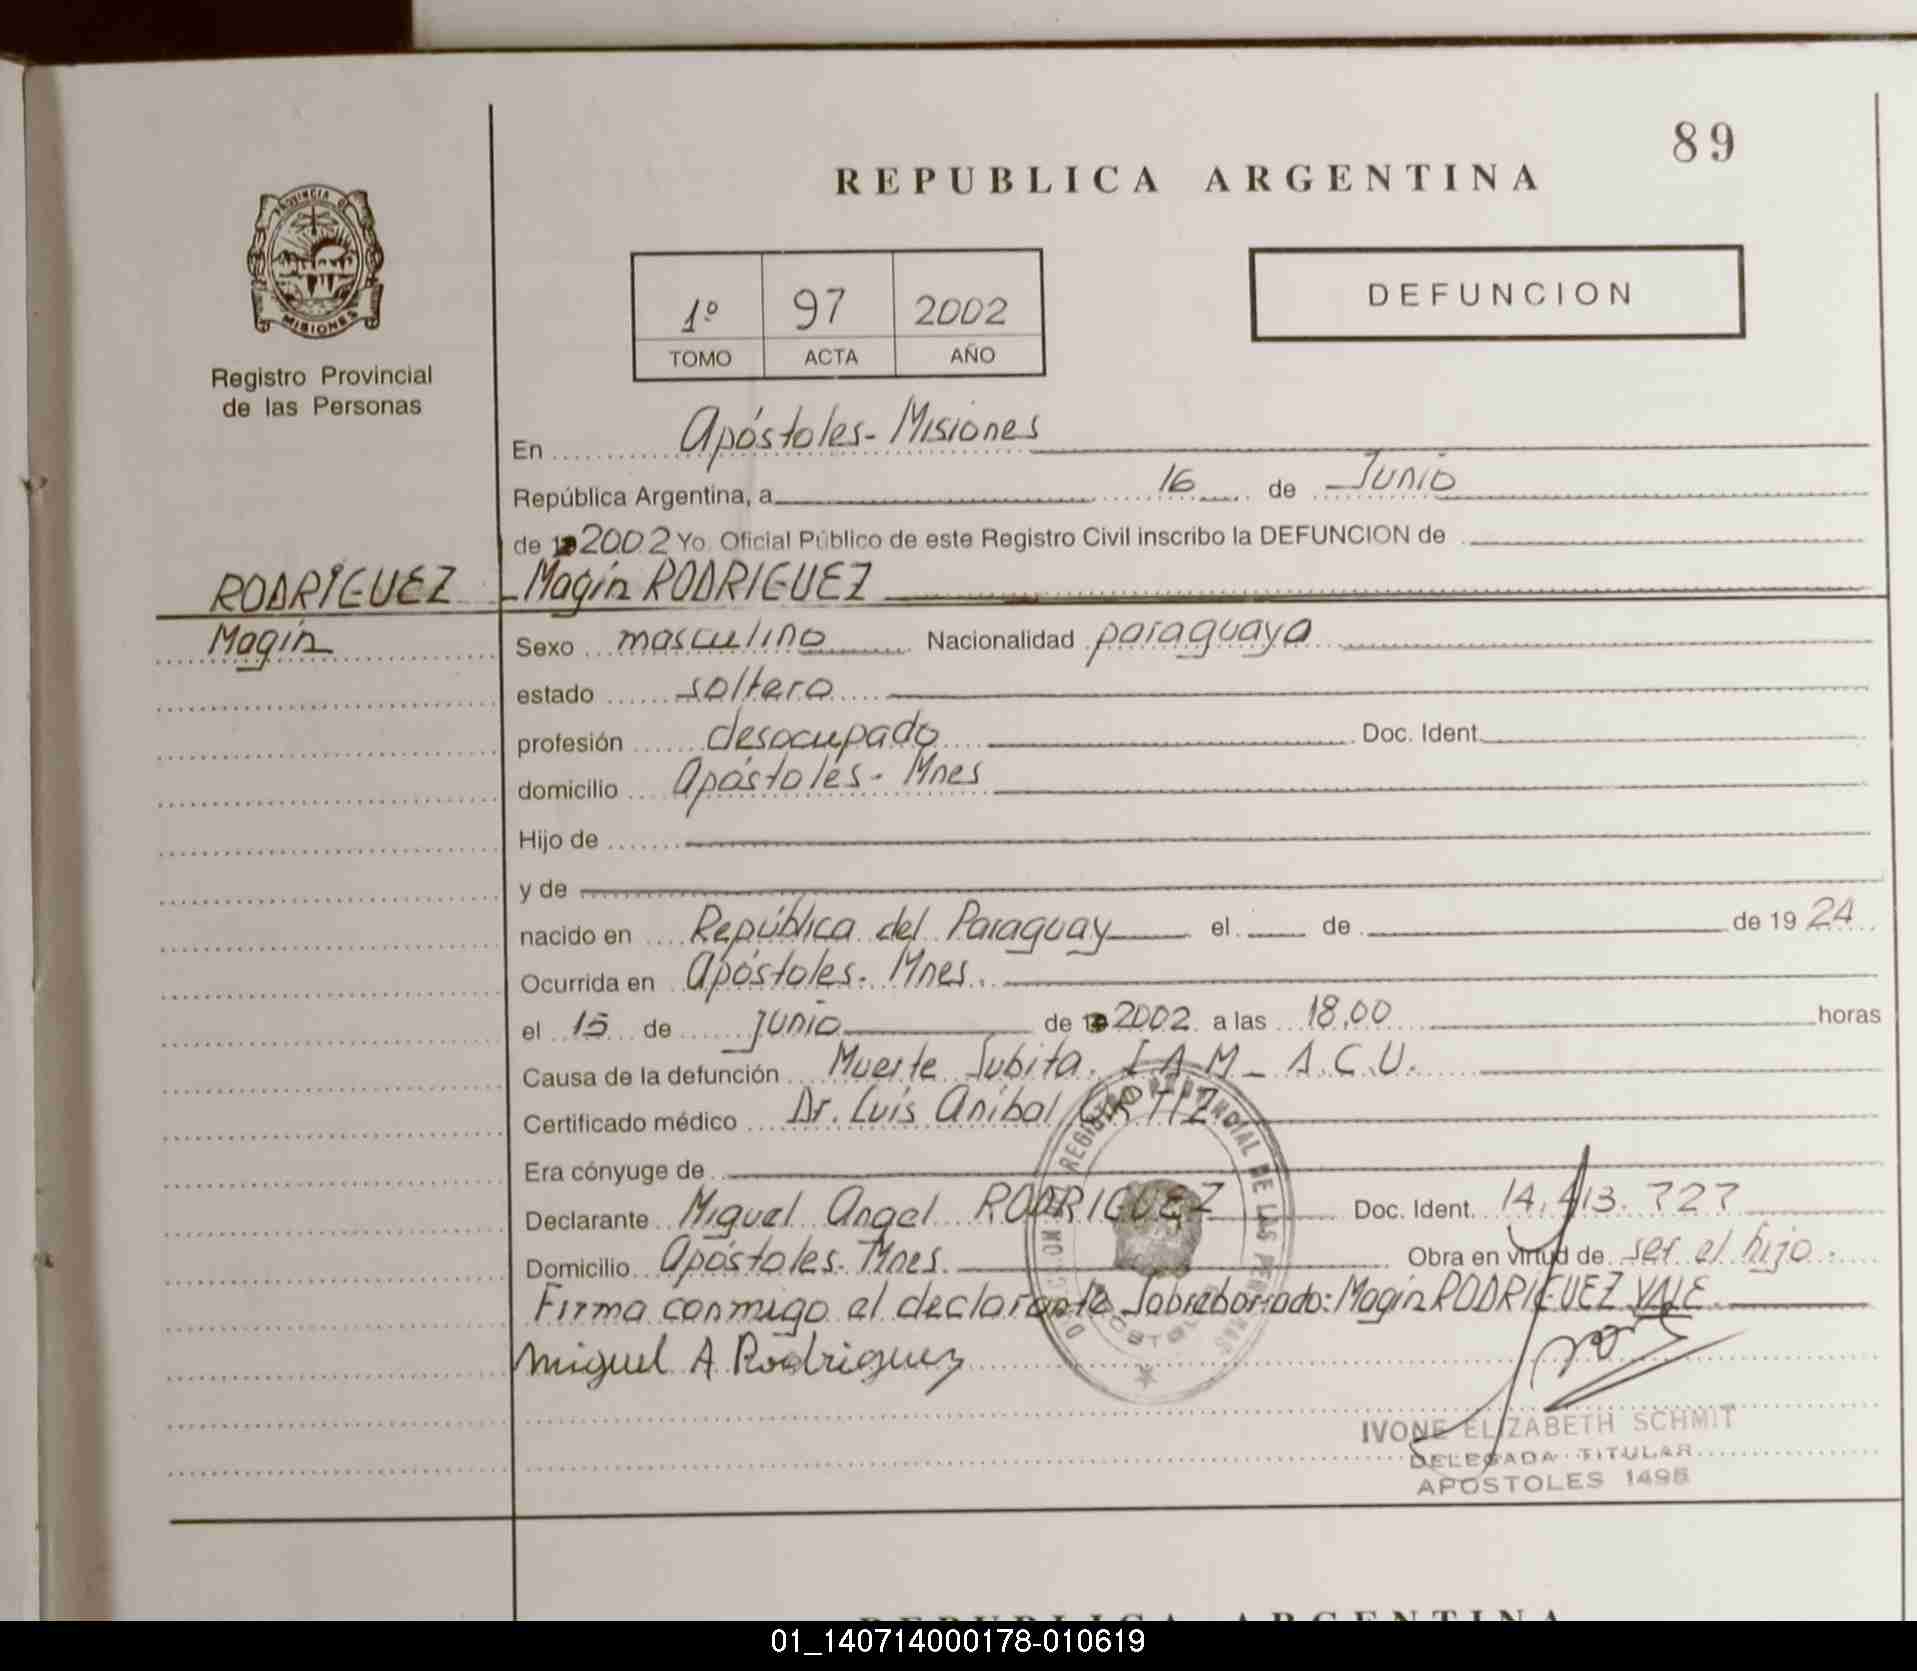 89
REPUBLICA ARGENTINA
PROVINCIA DE
MISIONES
Registro Provincial
de las Personas
1º 97 2002
TOMO ACTA AÑO
DEFUNCION
En Apóstoles - Misiones
República Argentina, a 16 de Junio
de 2002 Yo, Oficial Público de este Registro Civil inscribo la DEFUNCION de
RODRIGUEZ Magín RODRIGUEZ
Magín
Sexo masculino Nacionalidad paraguaya
estado soltero
profesión desocupado Doc. Ident.
domicilio Apóstoles - Mnes
Hijo de
y de
nacido en República del Paraguay el de de 1924
Ocurrida en Apóstoles. Mnes.
el 15 de junio de 2002 a las 18,00 horas
Causa de la defunción Muerte Subita. I A M - A.C.V.
Certificado médico Dr. Luis Anibal ORTIZ
Era cónyuge de
Declarante Miguel Angel RODRIGUEZ Doc. Ident. 14.413.727
Domicilio Apóstoles. Mnes. Obra en virtud de ser el hijo.
Firma conmigo el declarante Sobreborrado: Magín RODRIGUEZ VALE
Miguel A Rodriguez
REGISTRO PROVINCIAL DE LAS PERSONAS
IVONE ELIZABETH SCHMIT
DELEGADA TITULAR
APOSTOLES 1495
REPUBLICA ARGENTINA
01_140714000178-010619